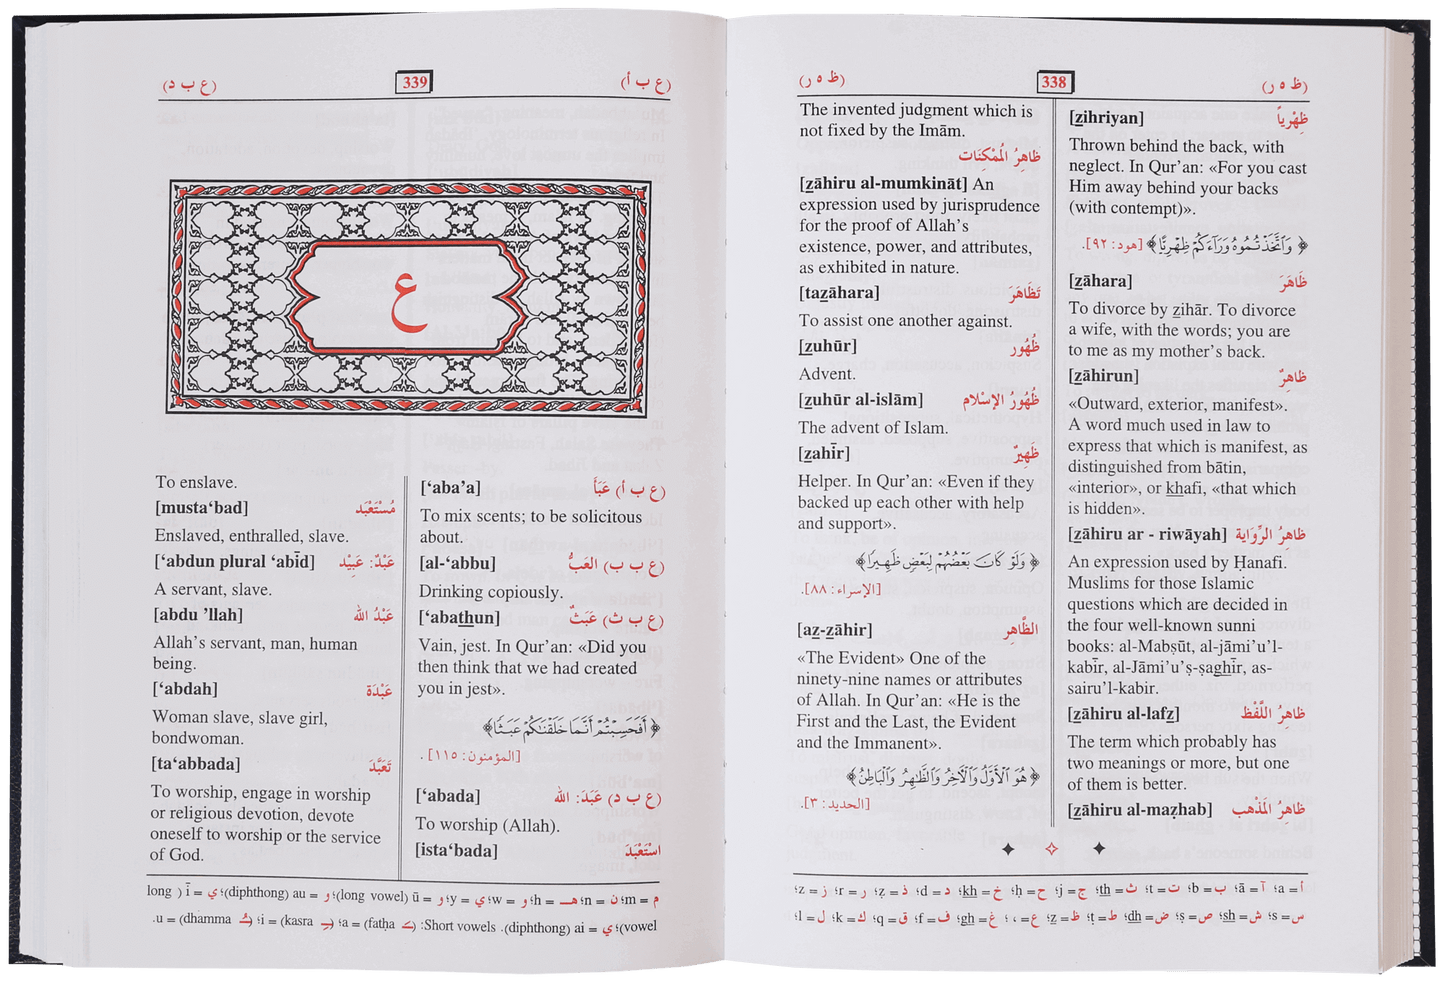 (ظ ه ر) 338 (ظ ه ر)
[ẕihriyan] ظِهْرِياً
Thrown behind the back, with
neglect. In Qur’an: «For you cast
Him away behind your backs
(with contempt)».
﴿ وَٱتَّخَذْتُمُوهُ وَرَآءَكُمْ ظِهْرِيًّا ﴾ [هود: ٩٢].
[ẕāhara] ظَاهَرَ
To divorce by ẕihār. To divorce
a wife, with the words; you are
to me as my mother’s back.
[ẕāhirun] ظاهِرٌ
«Outward, exterior, manifest».
A word much used in law to
express that which is manifest, as
distinguished from bātin,
«interior», or khafi, «that which
is hidden».
[ẕāhiru ar - riwāyah] ظاهِرُ الرِّوَاية
An expression used by Ḥanafi.
Muslims for those Islamic
questions which are decided in
the four well-known sunni
books: al-Mabṣūt, al-jāmi’u’l-
kabīr, al-Jāmi’u’ṣ-ṣaghīr, as-
sairu’l-kabir.
[ẕāhiru al-lafẕ] ظاهِرُ اللَّفْظ
The term which probably has
two meanings or more, but one
of them is better.
[ẕāhiru al-maẓhab] ظاهِرُ المَذْهب
The invented judgment which is
not fixed by the Imām.
ظاهِرُ المُمْكِنَات
[ẕāhiru al-mumkināt] An
expression used by jurisprudence
for the proof of Allah’s
existence, power, and attributes,
as exhibited in nature.
[taẕāhara] تَظَاهَرَ
To assist one another against.
[ẕuhūr] ظُهُور
Advent.
[ẕuhūr al-islām] ظُهُورُ الإسْلام
The advent of Islam.
[ẕahīr] ظَهِيرٌ
Helper. In Qur’an: «Even if they
backed up each other with help
and support».
﴿ وَلَوْ كَانَ بَعْضُهُمْ لِبَعْضٍ ظَهِيرًا ﴾
[الإسراء: ٨٨].
[aẕ-ẕāhir] الظَّاهِر
«The Evident» One of the
ninety-nine names or attributes
of Allah. In Qur’an: «He is the
First and the Last, the Evident
and the Immanent».
﴿ هُوَ ٱلْأَوَّلُ وَٱلْآخِرُ وَٱلظَّاهِرُ وَٱلْبَاطِنُ ﴾
[الحديد: ٣].
أ = a؛ آ = ā؛ ب = b؛ ت = t؛ ث = th؛ ج = j؛ ح = ḥ؛ خ = kh؛ د = d؛ ذ = ẓ؛ ر = r؛ ز = z؛
س = s؛ ش = sh؛ ص = ṣ؛ ض = dh؛ ط = ṭ؛ ظ = ẕ؛ ع = ‘؛ غ = gh؛ ف = f؛ ق = q؛ ك = k؛ ل = l؛
(ع ب أ) 339 (ع ب د)
ع
[‘aba’a] (ع ب أ) عَبَأَ
To mix scents; to be solicitous
about.
[al-‘abbu] (ع ب ب) العَبُّ
Drinking copiously.
[‘abathun] (ع ب ث) عَبَثٌ
Vain, jest. In Qur’an: «Did you
then think that we had created
you in jest».
﴿ أَفَحَسِبْتُمْ أَنَّمَا خَلَقْنَٰكُمْ عَبَثًا ﴾
[المؤمنون: ١١٥] .
[‘abada] (ع ب د) عَبَدَ: الله
To worship (Allah).
[ista‘bada] اسْتَعْبَدَ
To enslave.
[musta‘bad] مُسْتَعْبَد
Enslaved, enthralled, slave.
[‘abdun plural ‘abīd] عَبْدٌ: عَبِيْد
A servant, slave.
[abdu ’llah] عَبْدُ الله
Allah’s servant, man, human
being.
[‘abdah] عَبْدَة
Woman slave, slave girl,
bondwoman.
[ta‘abbada] تَعَبَّدَ
To worship, engage in worship
or religious devotion, devote
oneself to worship or the service
of God.
م = m؛ ن = n؛ هـ = h؛ و = w؛ ي = y؛ و = ū (long vowel)؛ و = au (diphthong)؛ ي = ī ( long
vowel)؛ ي = ai (diphthong). Short vowels: (ـَ fatḥa) = a؛ (ـِ kasra) = i؛ (ـُ dhamma) = u.